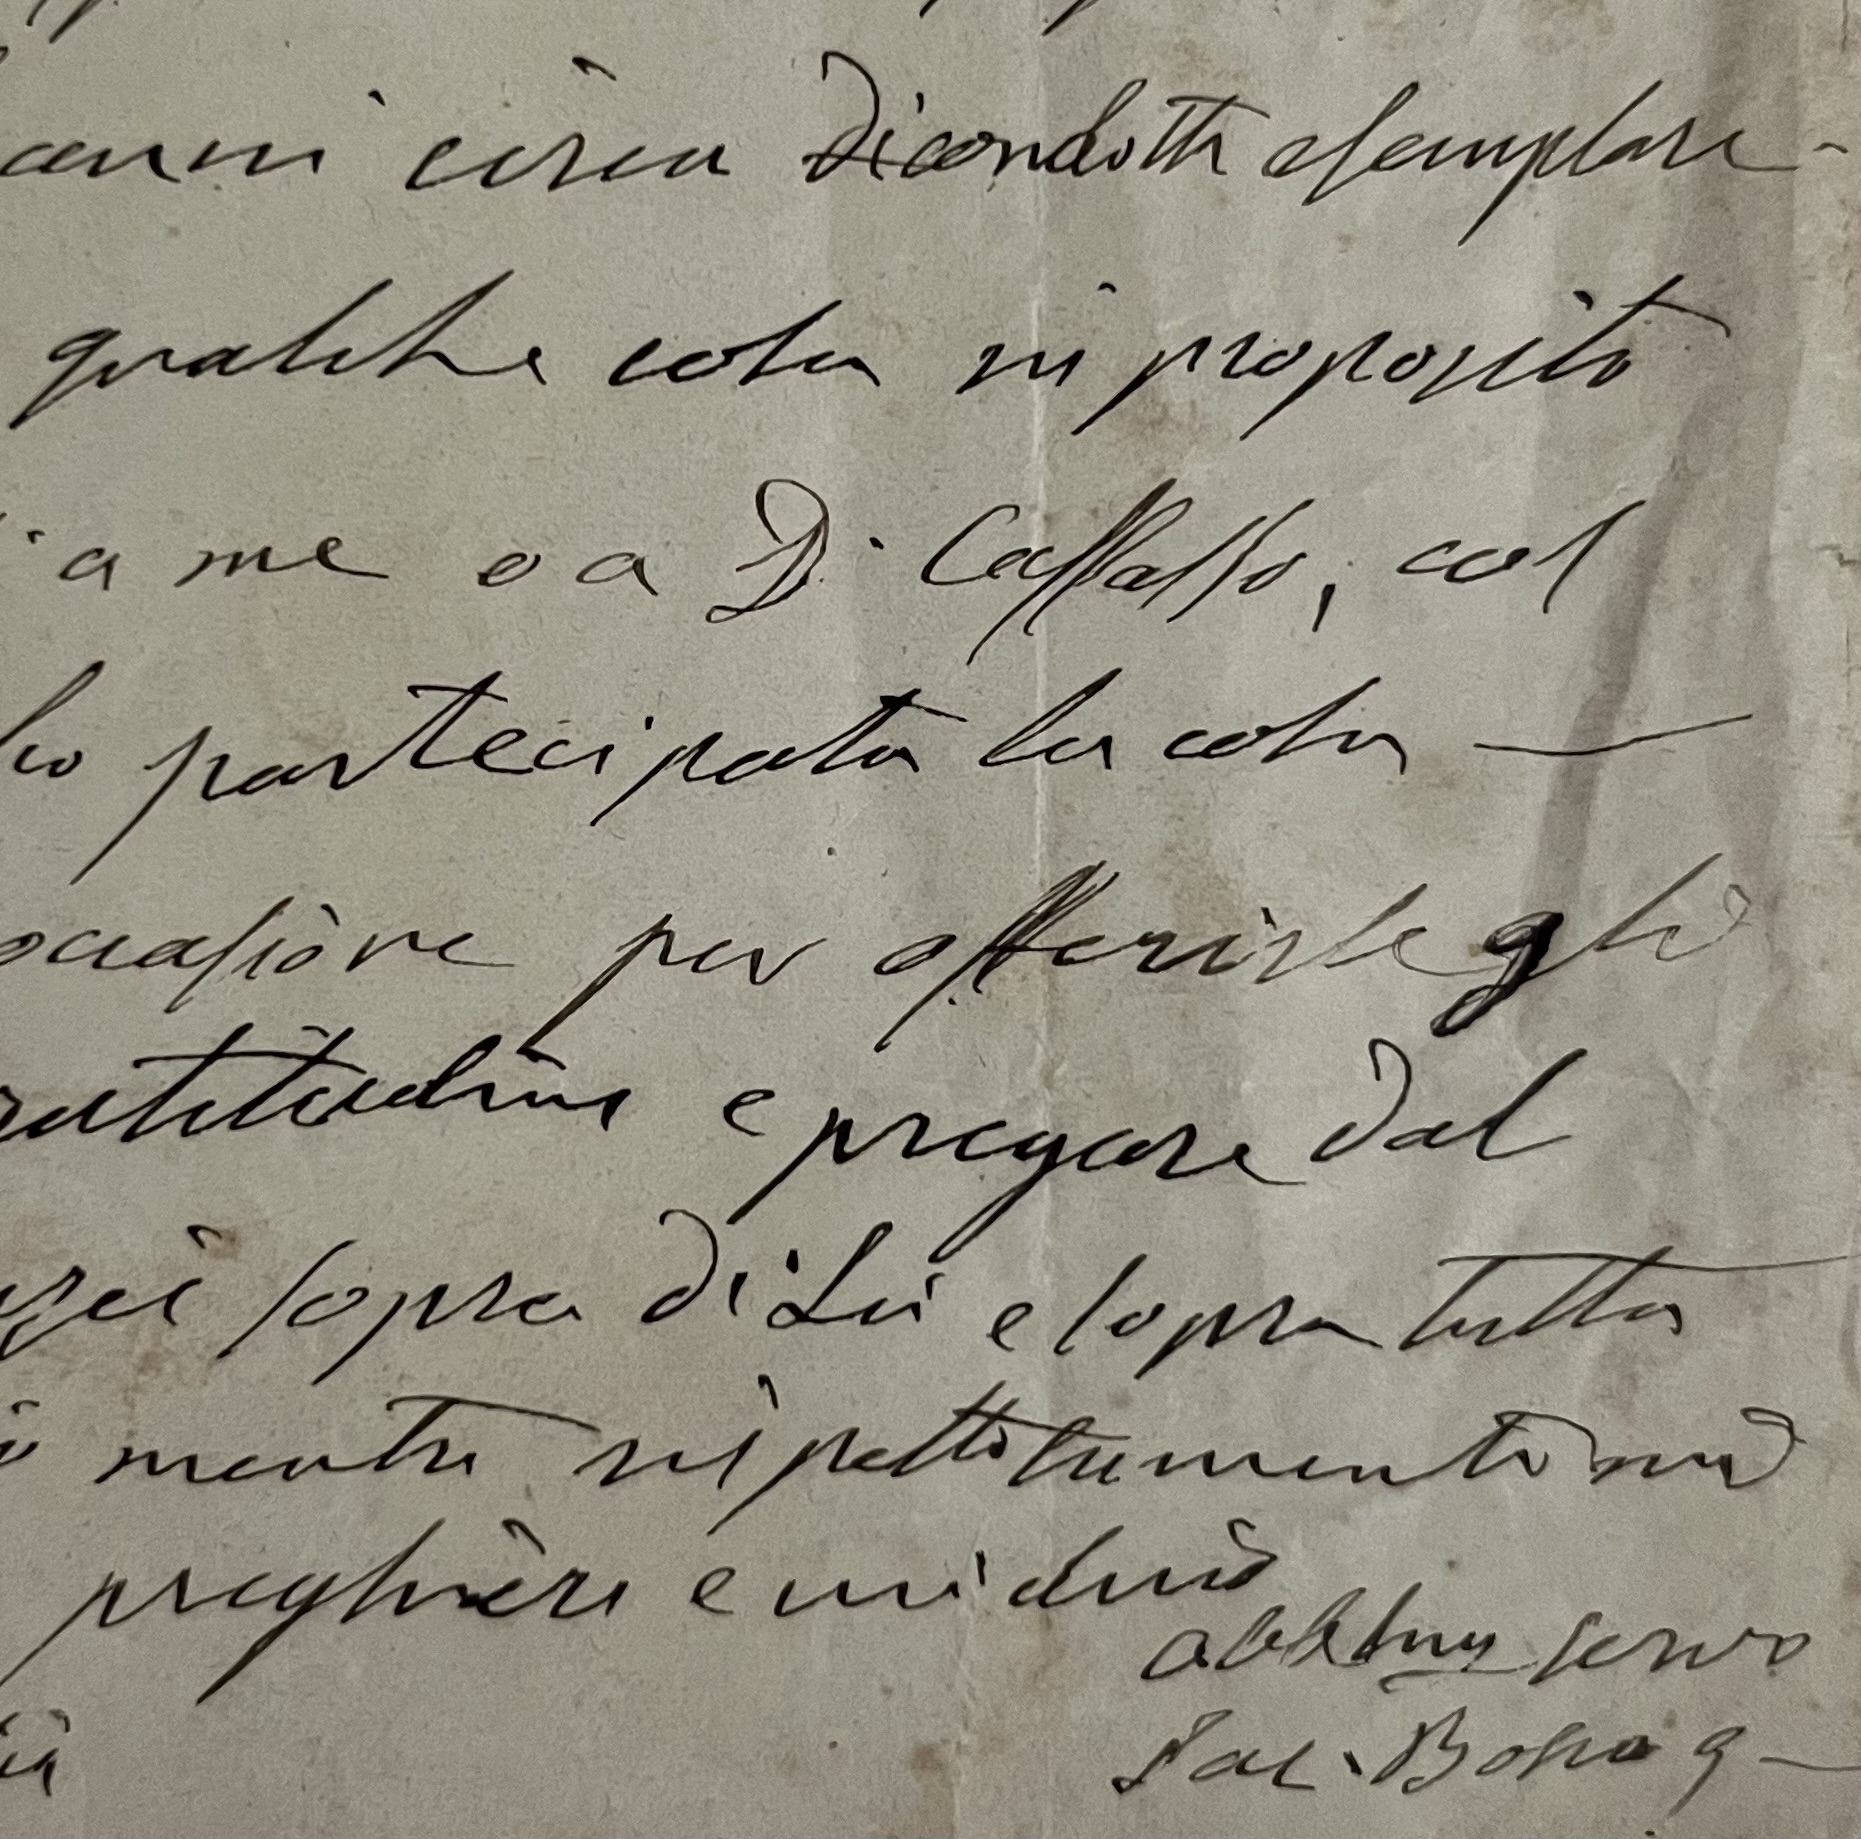 anni circa di condotta esemplare -
qualche cosa in proposito
a me o a D. Caffasso, col
partecipata la cosa —
occasione per offerirle gli
gratitudine e pregare dal
sopra di Lei e sopra tutta
mentre rispettosamente mi
preghiere e mi dico
obbl.mo servo
Sac. Bosco G